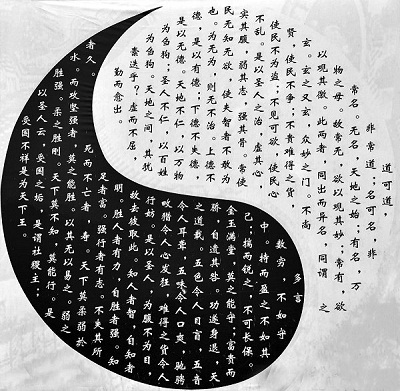 道可道，
非常道；名可名，非
常名。无名，天地之始；有名，万
物之母。故常无，欲以观其妙；常有，欲
以观其徼。此两者，同出而异名，同谓 之
玄。玄之又玄，众妙之门。不尚
贤，使民不争；不贵难得之货，
使民不为盗；不见可欲，使民心
不乱。是以圣人之治，虚其心，
实其腹，弱其志，强其骨。常使
民无知无欲，使夫智者不敢为
也。为无为，则无不治。上德不
德，是以有德；下德不失德，
是以无德。天地不仁，以万物
为刍狗；圣人不仁，以百姓
为刍狗。天地之间，其犹
橐迭乎？虚而不屈，
勤而愈出。
多言
数穷，不如守
中。持而盈之不如其
己；揣而锐之，不可长保。
金玉满堂，莫之能守；富贵而
骄，自遗其咎。功遂身退，天
之道哉。五色令人目盲，五音
令人耳聋，五味令人口爽，驰骋
畋猎令人心发狂，难得之货令人
行妨。是以圣人，为腹不为目，
故去彼取此。知人者智，自知者
明。胜人者有力，自胜者强。知
足者富。强行者有志。不失其所
者久。 死而不亡者 寿。天下莫柔弱於
水。而攻坚强者，莫之能胜。以其无以易之。弱之
胜强。柔之胜刚。天下莫不知，莫能行。是
以圣人云，受国之垢，是谓社稷主；
受国不祥是为天下王。